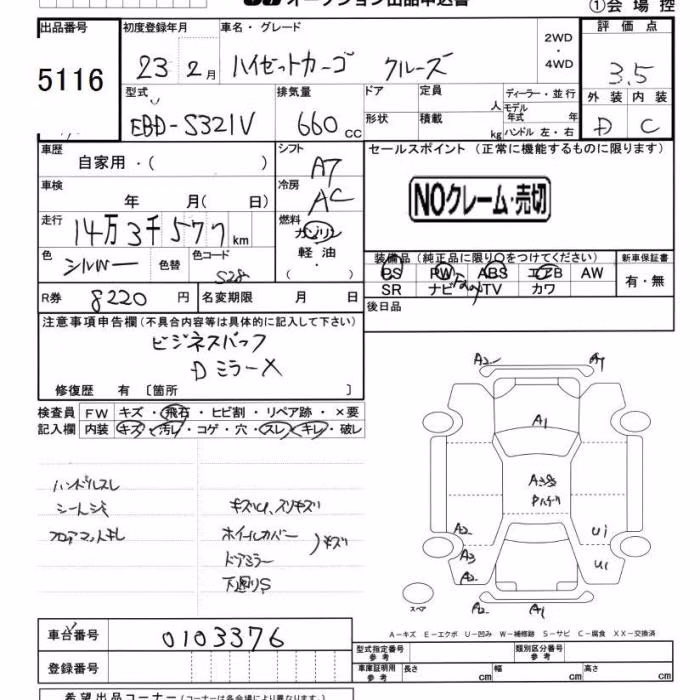 オークション出品申込書
①会場控
出品番号 初度登録年月 車名・グレード 2WD・4WD 評価点
5116 23 2月 ハイゼットカーゴ クルーズ 3.5
型式 排気量 ドア 定員 人 ディーラー・並行 外装 内装
EBD-S321V 660cc 形状 積載 kg モデル年式 年 ハンドル 左・右 D C
車歴 自家用・( ) シフト AT セールスポイント (正常に機能するものに限ります)
車検 年 月( 日) 冷房 AC NOクレーム・売切
走行 14万3千577km 燃料 ガソリン
軽油・( )
色 シルバー 色替 色コード S28 装備品(純正品に限り○をつけてください) 新車保証書
PS PW ABS エアB AW 有・無
SR ナビ TV カワ
R券 8220円 名変期限 月 日 後日品
注意事項申告欄(不具合内容等は具体的に記入して下さい)
ビジネスパック
Dミラー×
修復歴 有 〔箇所 〕
検査員記入欄 FW キズ・飛石・ヒビ割・リペア跡・×要
内装 キズ・汚レ・コゲ・穴・スレ・キレ・破レ
ハンドルスレ
シートシミ
フロアマットキレ
キズU、スリキズ
ホイールカバー
ドアミラー
キズ
下廻りS
A2 A1
A1
A2 A3 A2
U1
U1
A2 A1
スペア
A-キズ E-エクボ U-凹み W-補修跡 S-サビ C-腐食 XX-交換済
車台番号 0103376
登録番号
型式指定番号 参考 類別区分番号 参考
車庫証明用 参考 長さ cm 幅 cm 高さ cm
希望出品コーナー(コーナーは各会場により異なります)